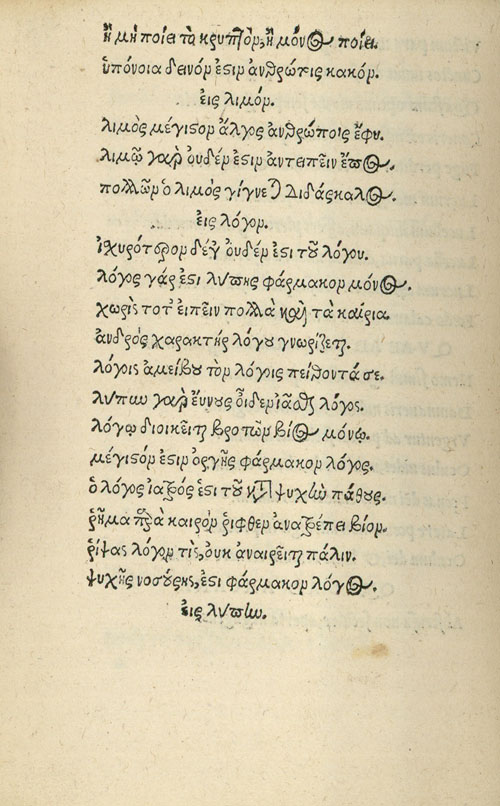 ἢ μὴ ποίει τὸ κρυπτὸν, ἢ μόνος ποίει.
ὑπόνοια δεινόν ἐστιν ἀνθρώποις κακόν.
εἰς λιμόν.
λιμὸς μέγιστον ἄλγος ἀνθρώποις ἔφυ.
λιμῷ γὰρ οὐδέν ἐστιν ἀντειπεῖν ἔπος.
πολλῶν ὁ λιμὸς γίγνεται διδάσκαλος.
εἰς λόγον.
ἰσχυρότερον δέ γ' οὐδέν ἐστι τοῦ λόγου.
λόγος γάρ ἐστι λύπης φάρμακον μόνος.
χωρὶς τό τ' εἰπεῖν πολλὰ καὶ τὰ καίρια.
ἀνδρὸς χαρακτὴρ λόγου γνωρίζεται.
λόγοις ἀμείβου τὸν λόγοις πείθοντά σε.
λύπην γὰρ εὔνους οἶδεν ἰᾶσθαι λόγος.
λόγῳ διοικεῖται βροτῶν βίος μόνῳ.
μέγιστόν ἐστιν ὀργῆς φάρμακον λόγος.
ὁ λόγος ἰατρός ἐστι τοῦ κατὰ ψυχὴν πάθους.
ῥῆμα παρὰ καιρὸν ῥιφθὲν ἀνατρέπει βίον.
ῥίψας λόγον τὶς, οὐκ ἀναιρεῖται πάλιν.
ψυχῆς νοσούσης, ἐστὶ φάρμακον λόγος.
εἰς λύπην.